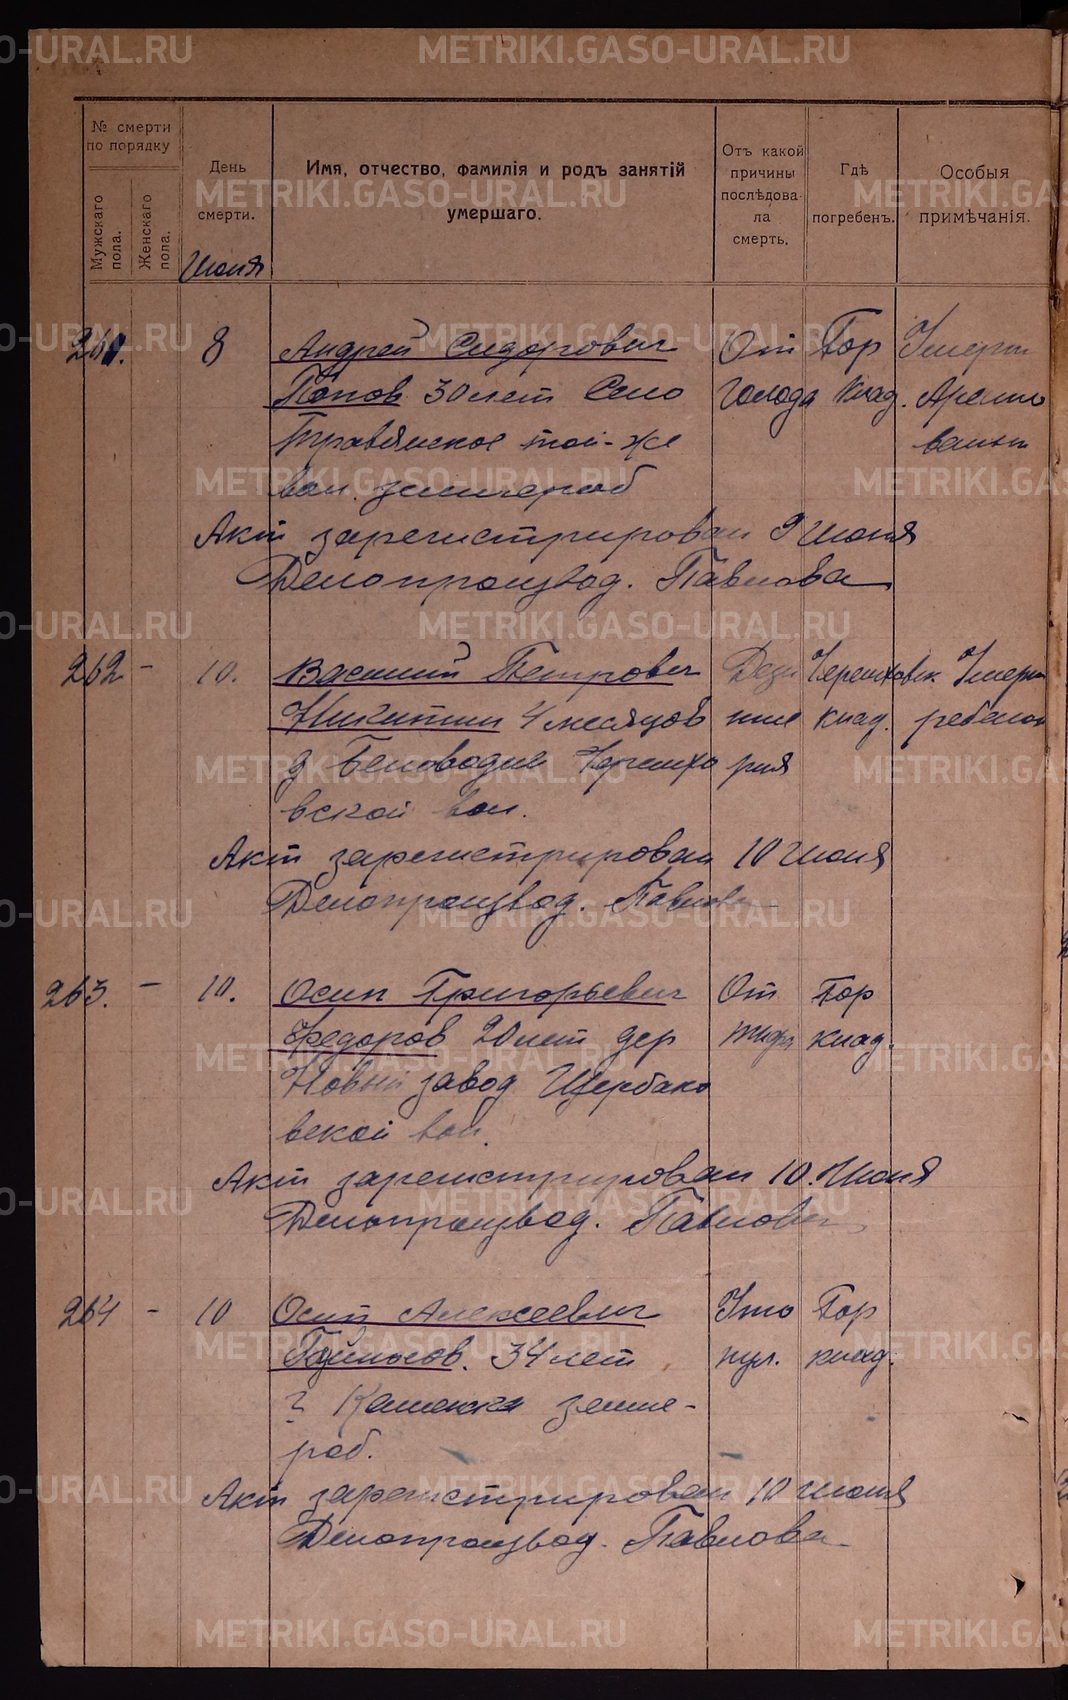 № смерти по порядку
Мужскаго пола.
Женскаго пола.
День смерти.
Июня
Имя, отчество, фамилія и родъ занятій умершаго.
Отъ какой причины послѣдовала смерть.
Гдѣ погребенъ.
Особыя примѣчанія.
261. 8 Андрей Сидорович От Гор
Попов 30 лет Село голода клад.
Травянское той-же
вол. землероб
Акт зарегистрирован 9 Июня
Делопроизвод. Павлова
262 - 10. Василий Петрович Дези Черемховск.
Никитин 4 месяцов клад. ребенок
д Беловодие Черемхо рия
вской вол.
Акт зарегистрирован 10 Июня
Делопроизвод. Павлова
263. - 10. Осип Григорьевич От Гор
Федоров 20 лет дер тифа клад.
Новый завод Щербако
вской вол.
Акт зарегистрирован 10. Июня
Делопроизвод. Павлова
264 - 10 Осип Алексеевич Гор
34 лет клад.
г Каменск земле-
роб.
Акт зарегистрирован 10 Июня
Делопроизвод. Павлова
METRIKI.GASO-URAL.RU